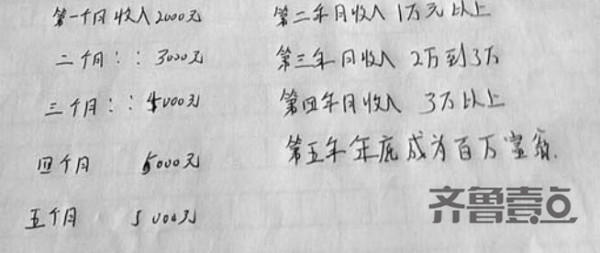 第一个月收入2000元
二个月：：3000元
三个月：：4000元
四个月 5000元
五个月 5000元
第二年月收入1万元以上
第三年月收入2万到3万
第四年月收入3万以上
第五年年底成为百万富翁.
齐鲁壹点